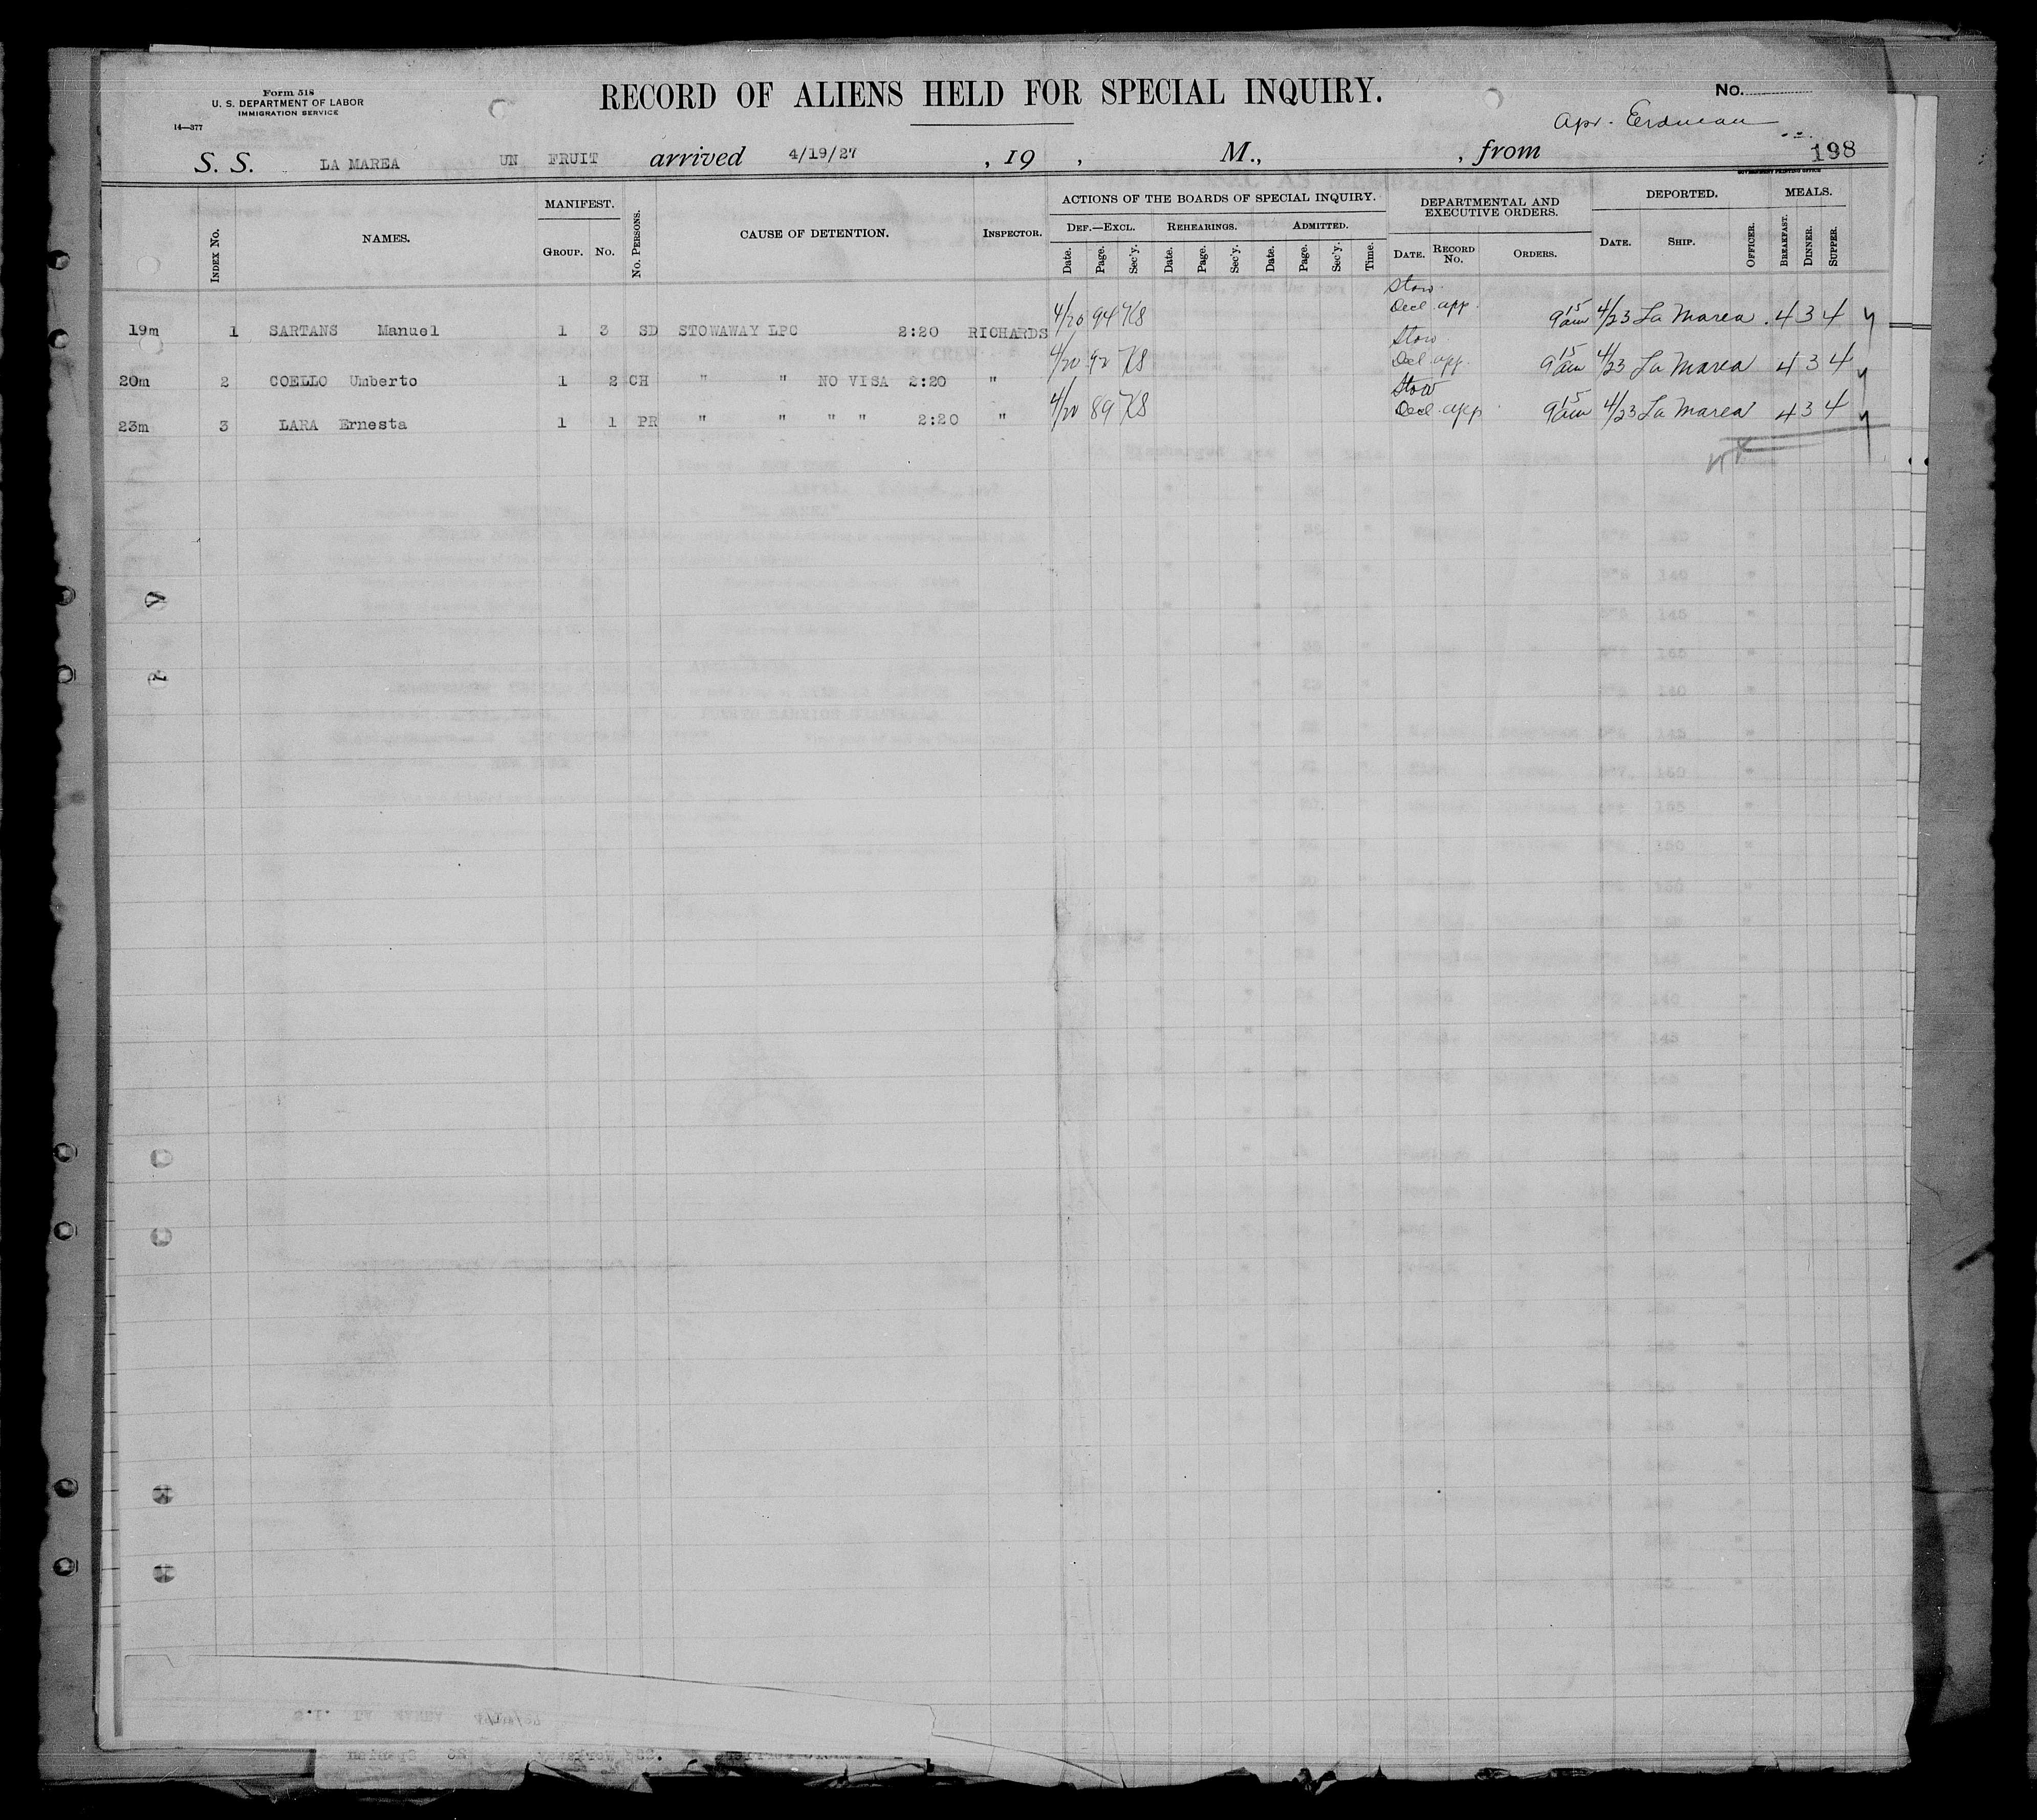 Form 518
U. S. DEPARTMENT OF LABOR
IMMIGRATION SERVICE
14—377
RECORD OF ALIENS HELD FOR SPECIAL INQUIRY.
No.
Apr. Erdman
S. S. LA MAREA UN FRUIT arrived 4/19/27 , 19 , M., , from 198
GOVERNMENT PRINTING OFFICE
INDEX No. NAMES. MANIFEST. GROUP. No. No. PERSONS. CAUSE OF DETENTION. INSPECTOR. ACTIONS OF THE BOARDS OF SPECIAL INQUIRY. DEPARTMENTAL AND EXECUTIVE ORDERS. DEPORTED. MEALS.
DEF.—EXCL. REHEARINGS. ADMITTED.
Date. Page. Sec'y. Date. Page. Sec'y. Date. Page. Sec'y. Time. DATE. RECORD No. ORDERS. DATE. SHIP. OFFICER. BREAKFAST. DINNER. SUPPER.
Stow.
19m 1 SARTANS Manuel 1 3 SD STOWAWAY LPC 2:20 RICHARDS 4/20 94 KS Decl. app. 9 15 am 4/23 La Marea 4 3 4
Stow.
20m 2 COELLO Umberto 1 2 CH " " NO VISA 2:20 " 4/20 92 KS Decl. app. 9 15 am 4/23 La Marea 4 3 4
Stow
23m 3 LARA Ernesta 1 1 PR " " " " 2:20 " 4/20 89 KS Decl. app 9 15 am 4/23 La Marea 4 3 4